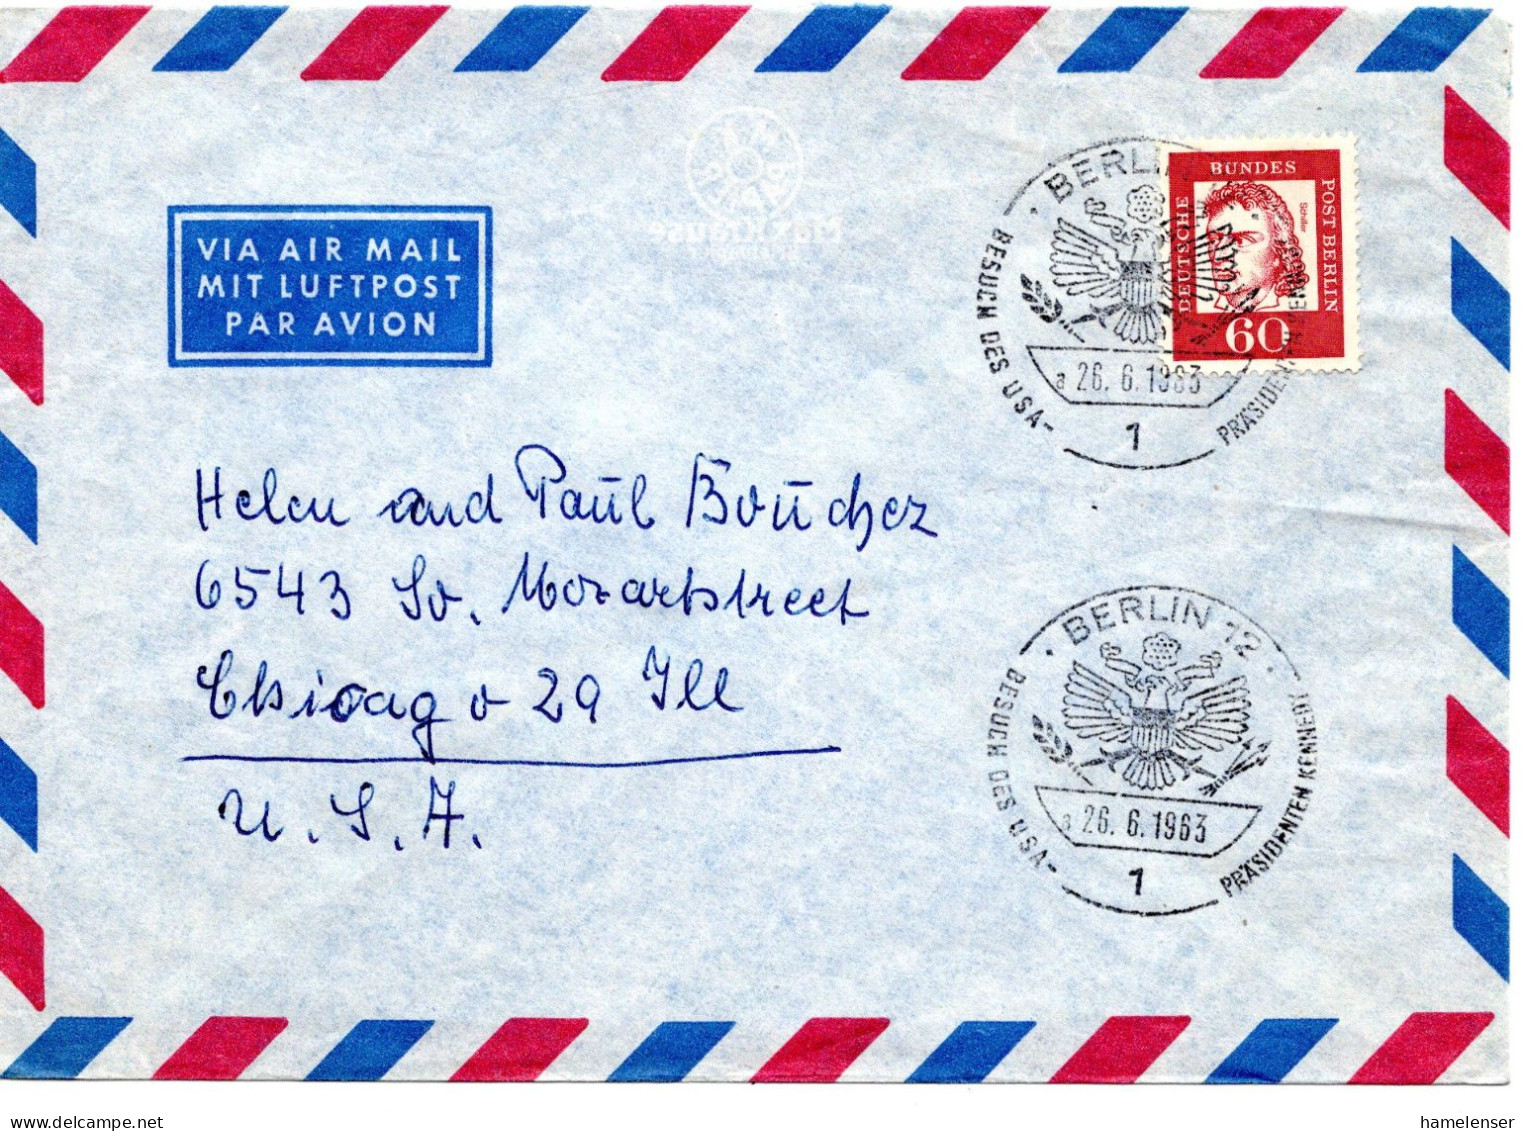 VIA AIR MAIL
MIT LUFTPOST
PAR AVION
BERLIN
BESUCH DES USA-
PRÄSIDENTEN KENN
a 26. 6. 1963
1
DEUTSCHE
BUNDES
POST BERLIN
Schiller
60
Helen and Paul Bouchez
6543 So. Mozartstreet
Chicago 29 Ill
U. S. A.
BERLIN 12
BESUCH DES USA-
PRÄSIDENTEN KENNEDY
a 26. 6. 1963
1
Max Krause
hamelenser